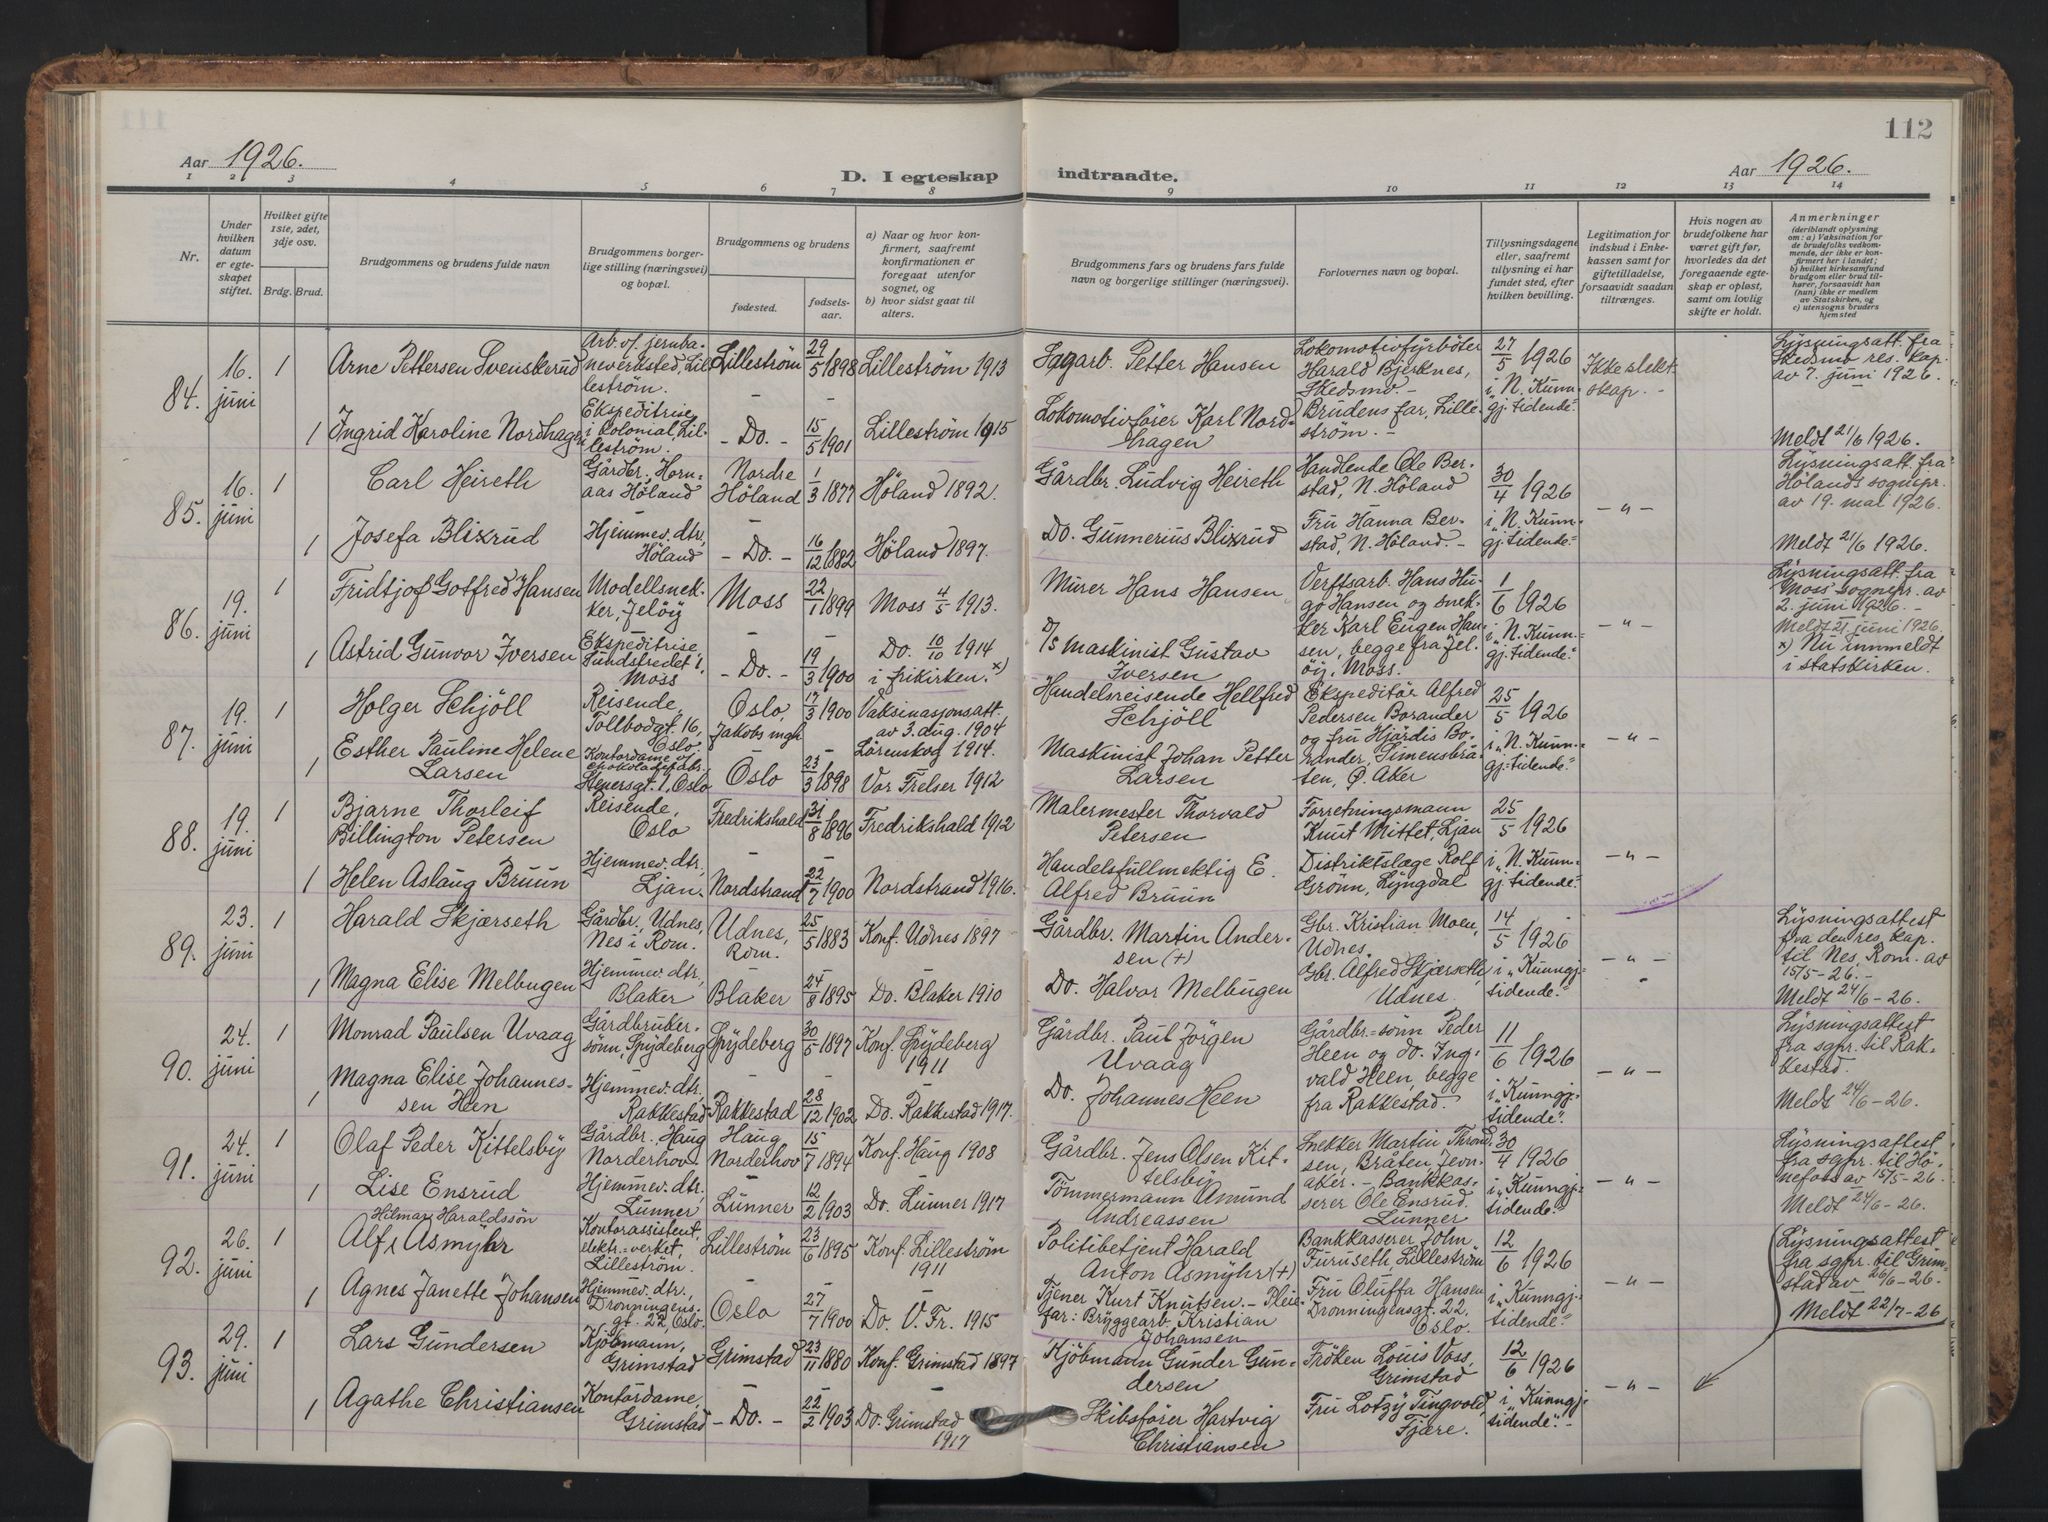 112
Aar 1926.
D. I egteskap indtraadte.
Aar 1926.
1 2 3 4 5 6 7 8 9 10 11 12 13 14
Nr.
Under hvilken datum er egteskapet stiftet.
Hvilket gifte 1ste, 2det, 3dje osv.
Brdg. Brud.
Brudgommens og brudens fulde navn
Brudgommens borgerlige stilling (næringsvei) og bopæl.
Brudgommens og brudens
fødested. fødselsaar.
a) Naar og hvor konfirmert, saafremt konfirmationen er foregaat utenfor sognet, og
b) hvor sidst gaat til alters.
Brudgommens fars og brudens fars fulde navn og borgerlige stillinger (næringsvei).
Forlovernes navn og bopæl.
Tillysningsdagene eller, saafremt tillysning ei har fundet sted, efter hvilken bevilling.
Legitimation for indskud i Enkekassen samt for giftetilladelse, forsaavidt saadan tiltrænges.
Hvis nogen av brudefolkene har været gift før, hvorledes da det foregaaende egteskap er opløst, samt om lovlig skifte er holdt.
Anmerkninger
(deriblandt oplysning om: a) Vaksination for de brudefolks vedkommende, der ikke er konfirmert her i landet; b) hvilket kirkesamfund brudgom eller brud tilhører, forsaavidt han (hun) ikke er medlem av Statskirken, og c) utensogns bruders hjemsted
84. 16. juni 1 Arne Pettersen Svenskerud Arb. v/ jernbaneverksted, Lilleström. Lilleström 29/5 1898 Lilleström 1913 Sagarb. Petter Hansen Lokomotivfyrböter Harald Bjerknes, Skedsmo - 27/5 1926 Ikke slektskap. - Lysningsatt. fra Skedsmo res. kap. av 7. juni 1926.
1 Ingrid Karoline Nordhagen Ekspeditrise i Colonial, Lilleström. - Do. - 15/5 1901 Lilleström 1915 Lokomotivförer Karl Nordhagen Brudens far, Lilleström. - i „N. Kunngj. tidende" Meldt 21/6 1926.
85. 16. juni 1 Carl Heireth Gårdbr. Hornaas Höland Nordre Höland 1/3 1877 Höland 1892. Gårdbr. Ludvig Heireth Handlende Ole Berstad, N. Höland 30/4 1926 - " - Lysningsatt. fra Hölands sognepr. av 19. mai 1926.
1 Josefa Blixrud Hjemmev. dtr, Höland - Do. - 16/12 1882 Höland 1897. Do. Gunnerius Blixrud Fru Hanna Berstad, N. Höland. - i „N. Kunngj. tidende" Meldt 21/6 1926.
86. 19. juni 1 Fridtjof Gotfred Hansen Modellsnekker, Jelöy Moss 22/1 1899 Moss 4/5 1913. Murer Hans Hansen Verftsarb. Hans Hugo Hansen og snekker Karl Eugen Hansen, begge fra Jelöy, Moss. 1/6 1926 - " - Lysningsatt. fra Moss sognepr. av 2. juni 1926. -
1 Astrid Gunvor Iversen Ekspeditrise, Sundstredet 1, Moss - Do. - 19/3 1900 Do. 10/10 1914 i frikirken. x) D/S Maskinist Gustav Iversen i „N. Kunngj. tidende" Meldt 21 juni 1926. x) Nu innmeldt i statskirken.
87. 19. juni 1 Holger Schjöll Reisende, Tollbodgt. 16, Oslo. Oslo, Jakobs mgh. 17/3 1900 Vaksinasjonsatt. av 3. aug. 1904 Lörenskog 1914. Handelsreisende Hellfred Schjöll Ekspeditör Alfred Pedersen Borander og fru Hjördis Borander, Simensbråten, Ø. Aker 25/5 1926 - " -
1 Esther Pauline Helene Larsen Kontordame v/ chokoladefabr. Stenersgt. 1, Oslo Oslo 23/3 1898 Vor Frelser 1912 Maskinist Johan Petter Larsen i „N. Kunngj. tidende"
88. 19. juni 1 Bjarne Thorleif Billington Petersen Reisende, Oslo Fredrikshald 31/8 1896 Fredrikshald 1912 Malermester Thorvald Petersen Forretningsmann Knut Mittet, Ljan 25/5 1926 - " -
1 Helen Aslaug Bruun Hjemmev. dtr, Ljan. Nordstrand 22/7 1900 Nordstrand 1916. Handelsfullmektig E. Alfred Bruun Distriktslæge Rolf Grönn, Lyngdal i „N. Kunngj. tidende"
89. 23. juni 1 Harald Skjærseth Gårdbr, Udnes, Nes i Rom. Udnes, Rom. 25/5 1883 Konf. Udnes 1897 Gårdbr. Martin Andersen (+) Gbr. Kristian Moen, Udnes. 14/5 1926 - " - Lysningsattest fra den res. kap. til Nes, Rom. av 15/5-26. -
1 Magna Elise Melbugen Hjemmev. dtr, Blaker Blaker 24/8 1895 Do. Blaker 1910 Do. Halvor Melbugen Gbr. Alfred Skjærseth, Udnes. i „Kunngj. tidende" Meldt 24/6-26.
90. 24. juni 1 Monrad Paulsen Uvaag Gårdbrukersönn, Spydeberg Spydeberg 30/5 1897 Konf. Spydeberg 1911 Gårdbr. Paul Jörgen Uvaag Gårdbr.=sönn Peder Heen og do. Ingvald Heen, begge fra Rakkestad. 11/6 1926 - " - Lysningsattest fra sgpr. til Rakkestad.
1 Magna Elise Johannessen Heen Hjemmev. dtr, Rakkestad Rakkestad 28/12 1902 Do. Rakkestad 1917. Do. Johannes Heen i „Kunngj. tidende". Meldt 24/6-26.
91. 24. juni 1 Olaf Peder Kittelsby Gårdbr. Haug Norderhov. Haug Norderhov 15/7 1894 Konf. Haug 1908 Gårdbr. Jens Olsen Kittelsby Snekker Martin Throndsen, Bråten, Jevnaker. - Bankkasserer Ole Ensrud, Lunner 30/4 1926 - " - Lysningsattest fra sgpr. til Hönefoss av 15/5-26.
1 Lise Ensrud Hjemmev. dtr, Lunner Lunner 12/2 1903 Do. Lunner 1917 Tömmermann Amund Andreassen i „Kunngj. tidende" Meldt 24/6-26.
92. 26. juni 1 Hilmar Haraldssön Alf Asmyhr Kontorassistent, elektr.=verket, Lilleström. Lilleström 23/6 1895 Konf. Lilleström 1911 Politibetjent Harald Anton Asmyhr (+) Bankkasserer John Furuseth, Lilleström 12/6 1926 - " - Lysningsattest fra sgpr. til Grimstad av 26/6-26.
1 Agnes Janette Johansen Hjemmev. dtr., Dronningensgt. 22, Oslo. Oslo 27/7 1900 Do. V. Fr. 1915 Tjener Kurt Knutsen. - Pleiefar: Bryggearb. Kristian Johansen Fru Oluffa Hansen Dronningensgt. 22, Oslo. i „Kunngj. tidende" Meldt 22/7-26
93. 29. juni 1 Lars Gundersen Kjöbmann, Grimstad Grimstad 23/11 1880 Konf. Grimstad 1897 Kjöbmann Gunder Gundersen Fröken Louis Voss, Grimstad 12/6 1926 - " -
1 Agathe Christiansen Kontordame, Grimstad - Do. - 22/2 1903 Do. Grimstad 1917 Skibsförer Hartvig Christiansen Fru Lotzy Tingvold, Fjære. i „Kunngj. tidende". -